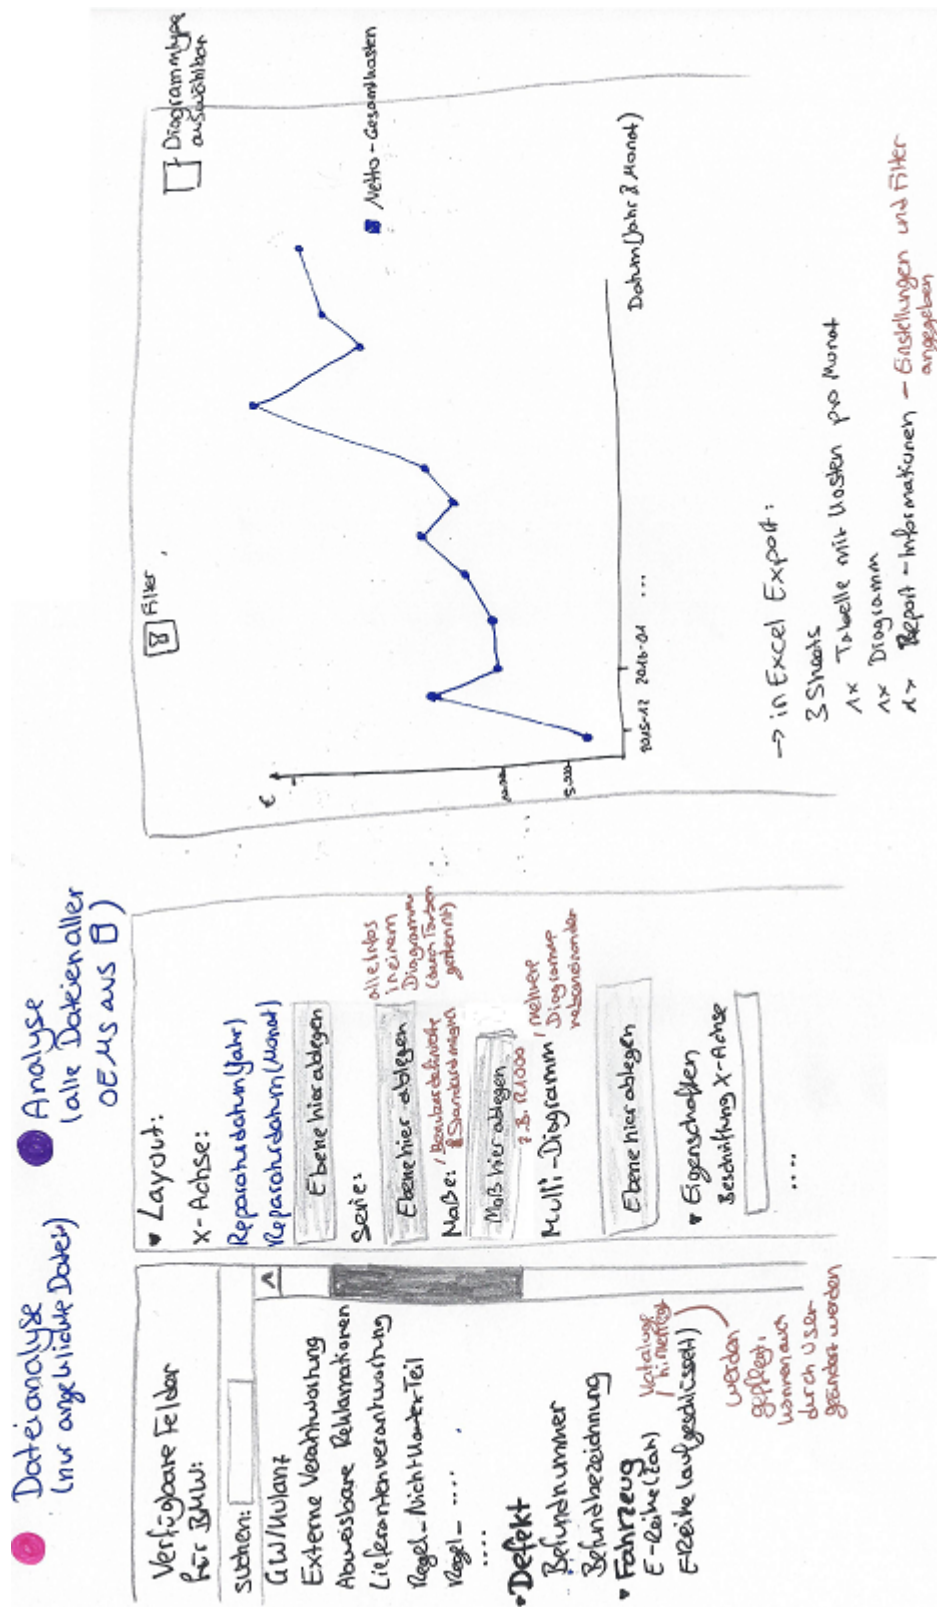 Dateianalyse
(nur angeklickte Datei)
Analyse
(alle Dateien aller
OEMs aus
)
Verfügbare Felder
für BMW:
suchen:
GW/Kulanz
Externe Verantwortung
Abweisbare Reklamationen
Lieferantenverantwortung
Regel-Nicht Kanter Teil
Regel- ....
....
Defekt
Befundnummer
Befundbezeichnung
Fahrzeug
E-Reihe (Zahl)
E-Reihe (aufgeschlüsselt)
Kataloge
hinterlegt
werden
gepflegt,
können auch
durch User
geändert werden
Layout:
X-Achse:
Reparaturdatum (Jahr)
Reparaturdatum (Monat)
Ebene hier ablegen
Serie:
Ebene hier ablegen
alle Infos
in einem
Diagramm
(durch Farben
getrennt)
Maße:
Benutzerdefinierte
& Standardmaßen
Maß hier ablegen
z.B. R1000
Multi-Diagramm
mehrere
Diagramme
nebeneinander
Ebene hier ablegen
Eigenschaften
Beschriftung X-Achse
....
Filter
Diagrammtyp
auswählen
€
5.000
2015-12
2016-01
...
Datum (Jahr & Monat)
Netto-Gesamtkosten
→ in Excel Export:
3 Sheets
1x Tabelle mit Kosten pro Monat
1x Diagramm
1x Report-Informationen - Einstellungen und Filter
angegeben